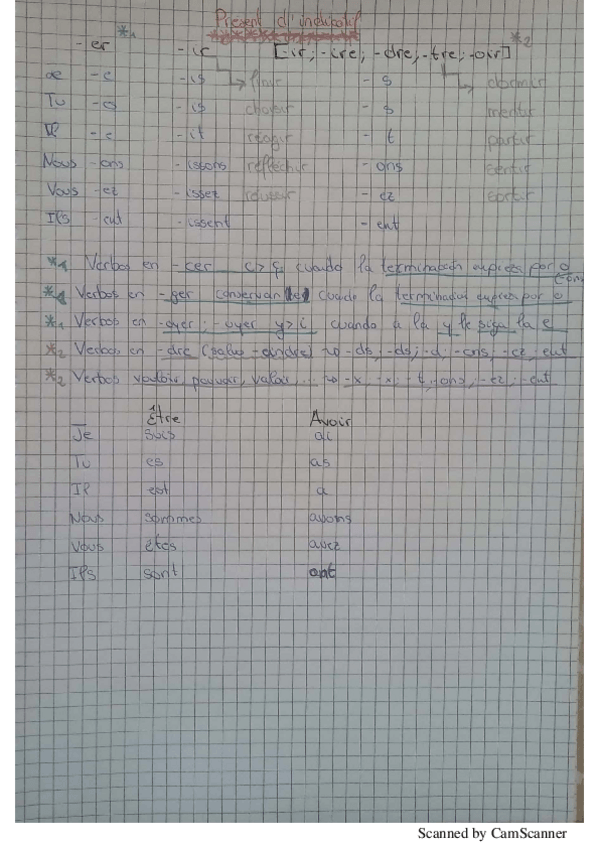 Présent d'indicatif
-er *1 -ir [-ir; -ire; -dre; -tre; -oir] *2
Je -e -is finir -s dormir
Tu -es -is choisir -s mentir
Il -e -it réagir -t partir
Nous -ons -issons réfléchir -ons sentir
Vous -ez -issez réussir -ez sortir
Ils -ent -issent -ent
*1 Verbos en -cer c>ç cuando la terminación empieza por o
*1 Verbos en -ger conservan cuando la terminación empieza por o
*1 Verbos en -ayer; -oyer y>i cuando a la y le sigue la e
*2 Verbos en -dre (salvo -eindre) -ds; -ds; -d; -ons; -ez; -ent
*2 Verbos vouloir, pouvoir, valoir... -x; -x; -t; -ons; -ez; -ent
Être Avoir
Je suis ai
Tu es as
Il est a
Nous sommes avons
Vous êtes avez
Ils sont ont
Scanned by CamScanner